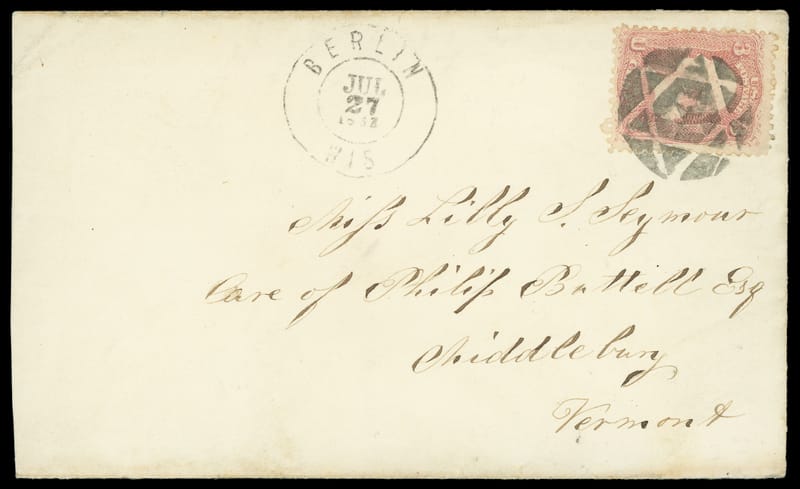 BERLIN
JUL
27
WIS
3
U
Miss Lilly S. Seymour
Care of Philip Battell Esq
Middlebury
Vermont